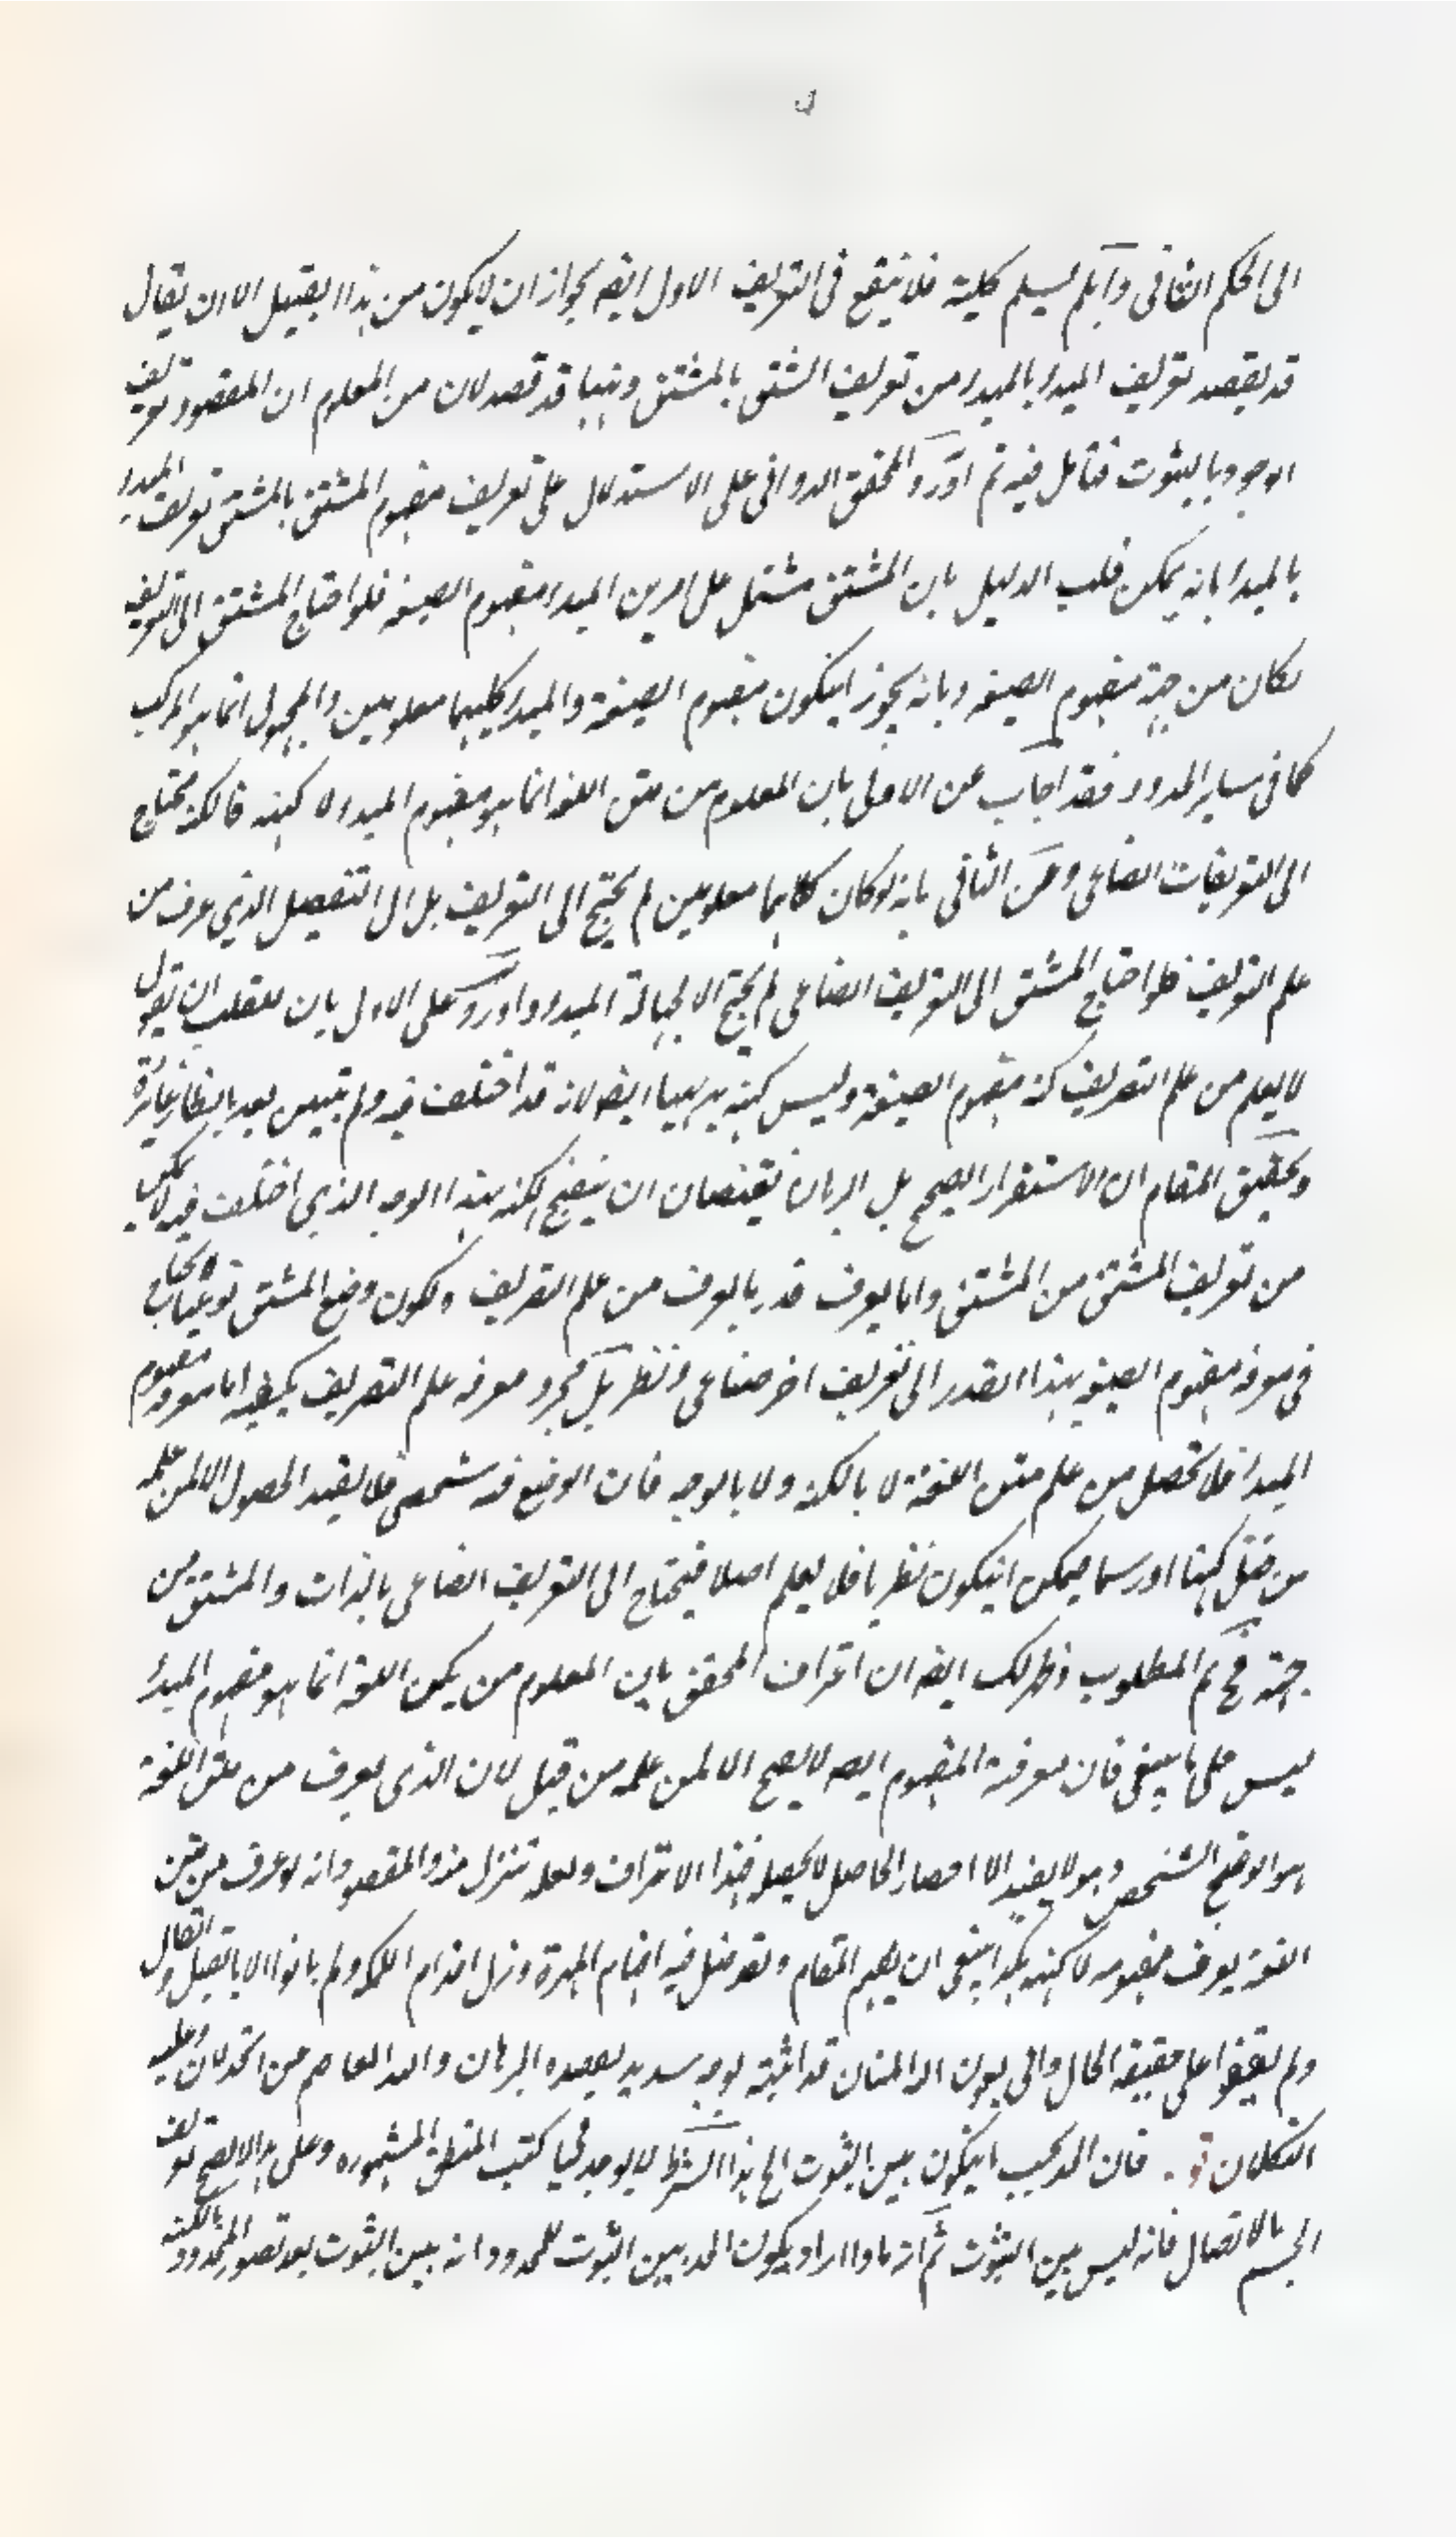 الى الحكم الثانى وان لم يسلم كلية فلا ينفع فى التعريف الاول ايضه لجواز ان لا يكون من هذا القبيل الا ان يقال
قد يقصد تعريف المبدا بالمبدا من تعريف المشتق بالمشتق وههنا قد قصد لان من المعلوم ان المقصود تعريف
الوجود بالثبوت فتامل فيه ثم اورد المحقق الدوانى على الاستدلال على تعريف مفهوم المشتق بالمشتق تعريف المبدا
بالمبدا بانه يمكن قلب الدليل بان المشتق مشتمل على امرين المبدا ومفهوم الصيغة فلو احتاج المشتق الى التعريف
لكان من جهة مفهوم الصيغة وبانه يجوز ان يكون مفهوم الصيغة والمبدا كليهما معلومين والمجهول انما هو المركب
كما فى ساير الحدود فقد اجاب عن الاول بان المعلوم من متن اللغة انما هو مفهوم المبدا لا كنهه فالكنه يحتاج
الى التعريفات الصناعى وعن الثانى بانه لو كان كلاهما معلومين لم يحتج الى التعريف بل الى التفصيل الذي عرف من
علم التعريف فلو احتاج المشتق الى التعريف الصناعى لم يحتج الا لجهالة المبدا واورد على الاول بان للقلب ان يقول
لا يعلم من علم التصريف كنه مفهوم الصيغة وليس كنهه بديهيا ايضه لانه قد اختلف فيه ولم يتبين بعد بانظار غائرة
وتحقيق المقام ان الاستقرار الصحيح بل البرهان يقتضيان ان يتضح الكنه بهذا الوجه الذي اختلف فيه لا يمكن
من تعريف المشتق من المشتق وانما يعرف قدر ما يعرف من علم التصريف ولكون وضع المشتق نوعيا لا يحتاج
فى معرفة مفهوم الصيغة بهذا القدر الى تعريف اخر صناعى ونظر بل مجرد معرفة علم التصريف يكفيه اما معرفة مفهوم
المبدا فلا تحصل من علم متن اللغة لا بالكنه ولا بالوجه فان الوضع فيه شخصى فلا يفيد الحصول الا لمن علمه
من قبل كنها او رسما فيمكن ان يكون نظريا فلا يعلم اصلا فيحتاج الى التعريف الصناعى بالذات والمشتق من
جهته فح تم المطلوب وظهر لك ايضه ان اعتراف المحقق بان المعلوم من متن اللغة انما هو مفهوم المبدا
ليس على ما ينبغى فان معرفة المفهوم ايضه لا يصح الا لمن علمه من قبل لان الذى يعرف من متن اللغة
هو الوضع الشخصى وهو لا يفيد الا احضار الحاصل لا تحصيله فهذا الاعتراف ولعله تنزل منه والمقصود انه لو عرف من متن
اللغة يعرف مفهومه لا كنهه هكذا ينبغى ان يفهم المقام ولقد ضل فيه افهام المهرة وزل اقدام الكملة ولم ياتوا الا بالقيل والقال
ولم يقفوا على حقيقة الحال وانى بعون الله المنان قد اثبته بوجه سديد يعضده البرهان والله العاصم من الخذلان وعليه
التكلان قو . فان الحد يجب ان يكون بين الثبوت الخ هذا الشرط لا يوجد فى كتب المنطق المشهوره وعلى هذا لا يصح تعريف
الجسم بالاتصال فانه ليس بين الثبوت ثم انه ماذا اراد بكون الحد بين الثبوت للمحدود انه بين الثبوت بعد تصور المحدود بالكنه